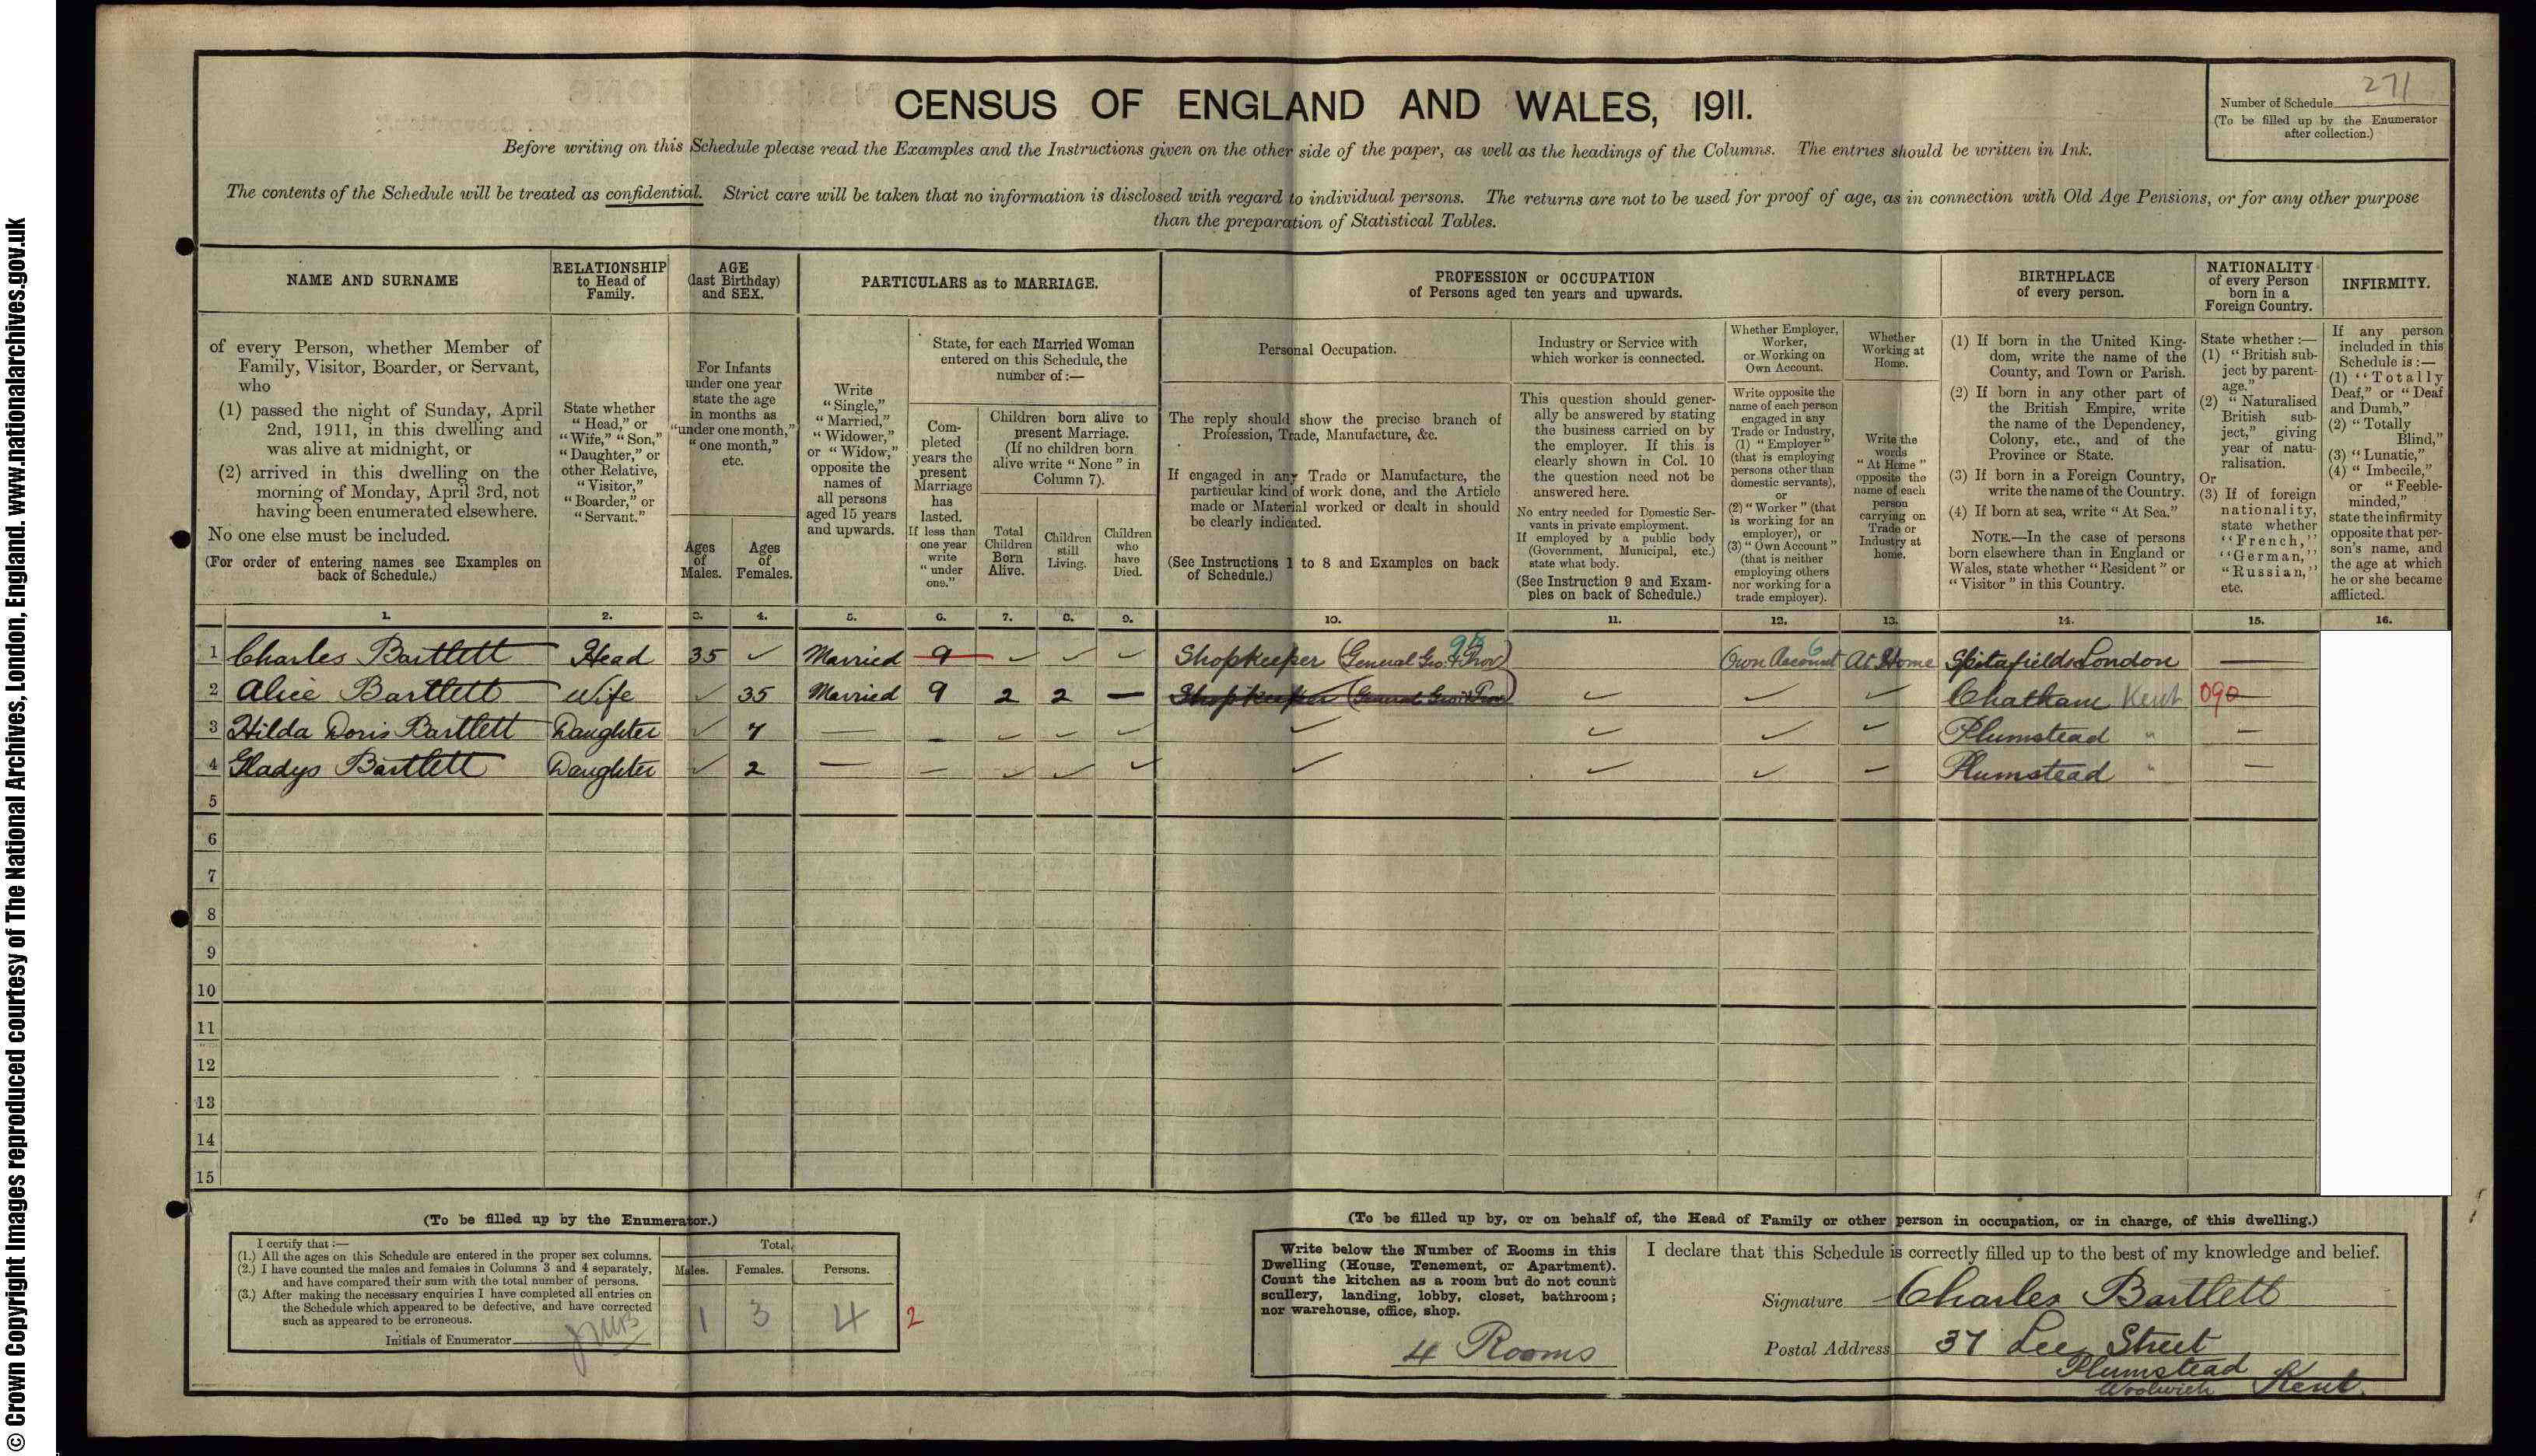 © Crown Copyright Images reproduced courtesy of The National Archives, London, England. www.nationalarchives.gov.uk
271
Number of Schedule
(To be filled up by the Enumerator
after collection.)
CENSUS OF ENGLAND AND WALES, 1911.
Before writing on this Schedule please read the Examples and the Instructions given on the other side of the paper, as well as the headings of the Columns. The entries should be written in Ink.
The contents of the Schedule will be treated as confidential. Strict care will be taken that no information is disclosed with regard to individual persons. The returns are not to be used for proof of age, as in connection with Old Age Pensions, or for any other purpose
than the preparation of Statistical Tables.
NAME AND SURNAME
of every Person, whether Member of
Family, Visitor, Boarder, or Servant,
who
(1) passed the night of Sunday, April
2nd, 1911, in this dwelling and
was alive at midnight, or
(2) arrived in this dwelling on the
morning of Monday, April 3rd, not
having been enumerated elsewhere.
No one else must be included.
(For order of entering names see Examples on
back of Schedule.)
RELATIONSHIP
to Head of
Family.
State whether
"Head," or
"Wife," "Son,"
"Daughter," or
other Relative,
"Visitor,"
"Boarder," or
"Servant."
AGE
(last Birthday)
and SEX.
For Infants
under one year
state the age
in months as
"under one month,"
"one month,"
etc.
Ages
of
Males.
Ages
of
Females.
PARTICULARS as to MARRIAGE.
Write
"Single,"
"Married,"
"Widower,"
or "Widow,"
opposite the
names of
all persons
aged 15 years
and upwards.
State, for each Married Woman
entered on this Schedule, the
number of :—
Com-
pleted
years the
present
Marriage
has
lasted.
If less than
one year
write
"under
one."
Children born alive to
present Marriage.
(If no children born
alive write "None" in
Column 7).
Total
Children
Born
Alive.
Children
still
Living.
Children
who
have
Died.
PROFESSION or OCCUPATION
of Persons aged ten years and upwards.
Personal Occupation.
The reply should show the precise branch of
Profession, Trade, Manufacture, &c.
If engaged in any Trade or Manufacture, the
particular kind of work done, and the Article
made or Material worked or dealt in should
be clearly indicated.
(See Instructions 1 to 8 and Examples on back
of Schedule.)
Industry or Service with
which worker is connected.
This question should gener-
ally be answered by stating
the business carried on by
the employer. If this is
clearly shown in Col. 10
the question need not be
answered here.
No entry needed for Domestic Ser-
vants in private employment.
If employed by a public body
(Government, Municipal, etc.)
state what body.
(See Instruction 9 and Exam-
ples on back of Schedule.)
Whether Employer,
Worker,
or Working on
Own Account.
Write opposite the
name of each person
engaged in any
Trade or Industry,
(1) "Employer"
(that is employing
persons other than
domestic servants),
or
(2) "Worker" (that
is working for an
employer), or
(3) "Own Account"
(that is neither
employing others
nor working for a
trade employer).
Whether
Working at
Home.
Write the
words
"At Home"
opposite the
name of each
person
carrying on
Trade or
Industry at
home.
BIRTHPLACE
of every person.
(1) If born in the United King-
dom, write the name of the
County, and Town or Parish.
(2) If born in any other part of
the British Empire, write
the name of the Dependency,
Colony, etc., and of the
Province or State.
(3) If born in a Foreign Country,
write the name of the Country.
(4) If born at sea, write "At Sea."
NOTE.—In the case of persons
born elsewhere than in England or
Wales, state whether "Resident" or
"Visitor" in this Country.
NATIONALITY
of every Person
born in a
Foreign Country.
State whether :—
(1) "British sub-
ject by parent-
age."
(2) "Naturalised
British sub-
ject," giving
year of natu-
ralisation.
Or
(3) If of foreign
nationality,
state whether
"French,"
"German,"
"Russian,"
etc.
INFIRMITY.
If any person
included in this
Schedule is :—
(1) "Totally
Deaf," or "Deaf
and Dumb,"
(2) "Totally
Blind,"
(3) "Lunatic,"
(4) "Imbecile,"
or "Feeble-
minded,"
state the infirmity
opposite that per-
son's name, and
the age at which
he or she became
afflicted.
1. 2. 3. 4. 5. 6. 7. 8. 9. 10. 11. 12. 13. 14. 15. 16.
1 Charles Bartlett Head 35 Married 9 Shopkeeper (General Gro. & Prov) Own Account 6 At Home Spitafields London —
2 Alice Bartlett Wife 35 Married 9 2 2 — Shopkeeper (General Chatham Kent 090
3 Hilda Doris Bartlett Daughter 7 — Plumstead " —
4 Gladys Bartlett Daughter 2 — Plumstead " —
5
6
7
8
9
10
11
12
13
14
15
(To be filled up by the Enumerator.)
I certify that :—
(1.) All the ages on this Schedule are entered in the proper sex columns.
(2.) I have counted the males and females in Columns 3 and 4 separately,
and have compared their sum with the total number of persons.
(3.) After making the necessary enquiries I have completed all entries on
the Schedule which appeared to be defective, and have corrected
such as appeared to be erroneous.
Initials of Enumerator
Total.
Males. Females. Persons.
1 3 4 2
(To be filled up by, or on behalf of, the Head of Family or other person in occupation, or in charge, of this dwelling.)
Write below the Number of Rooms in this
Dwelling (House, Tenement, or Apartment).
Count the kitchen as a room but do not count
scullery, landing, lobby, closet, bathroom;
nor warehouse, office, shop.
4 Rooms
I declare that this Schedule is correctly filled up to the best of my knowledge and belief.
Signature Charles Bartlett
Postal Address 37 Lee Street
Plumstead
Woolwich Kent.